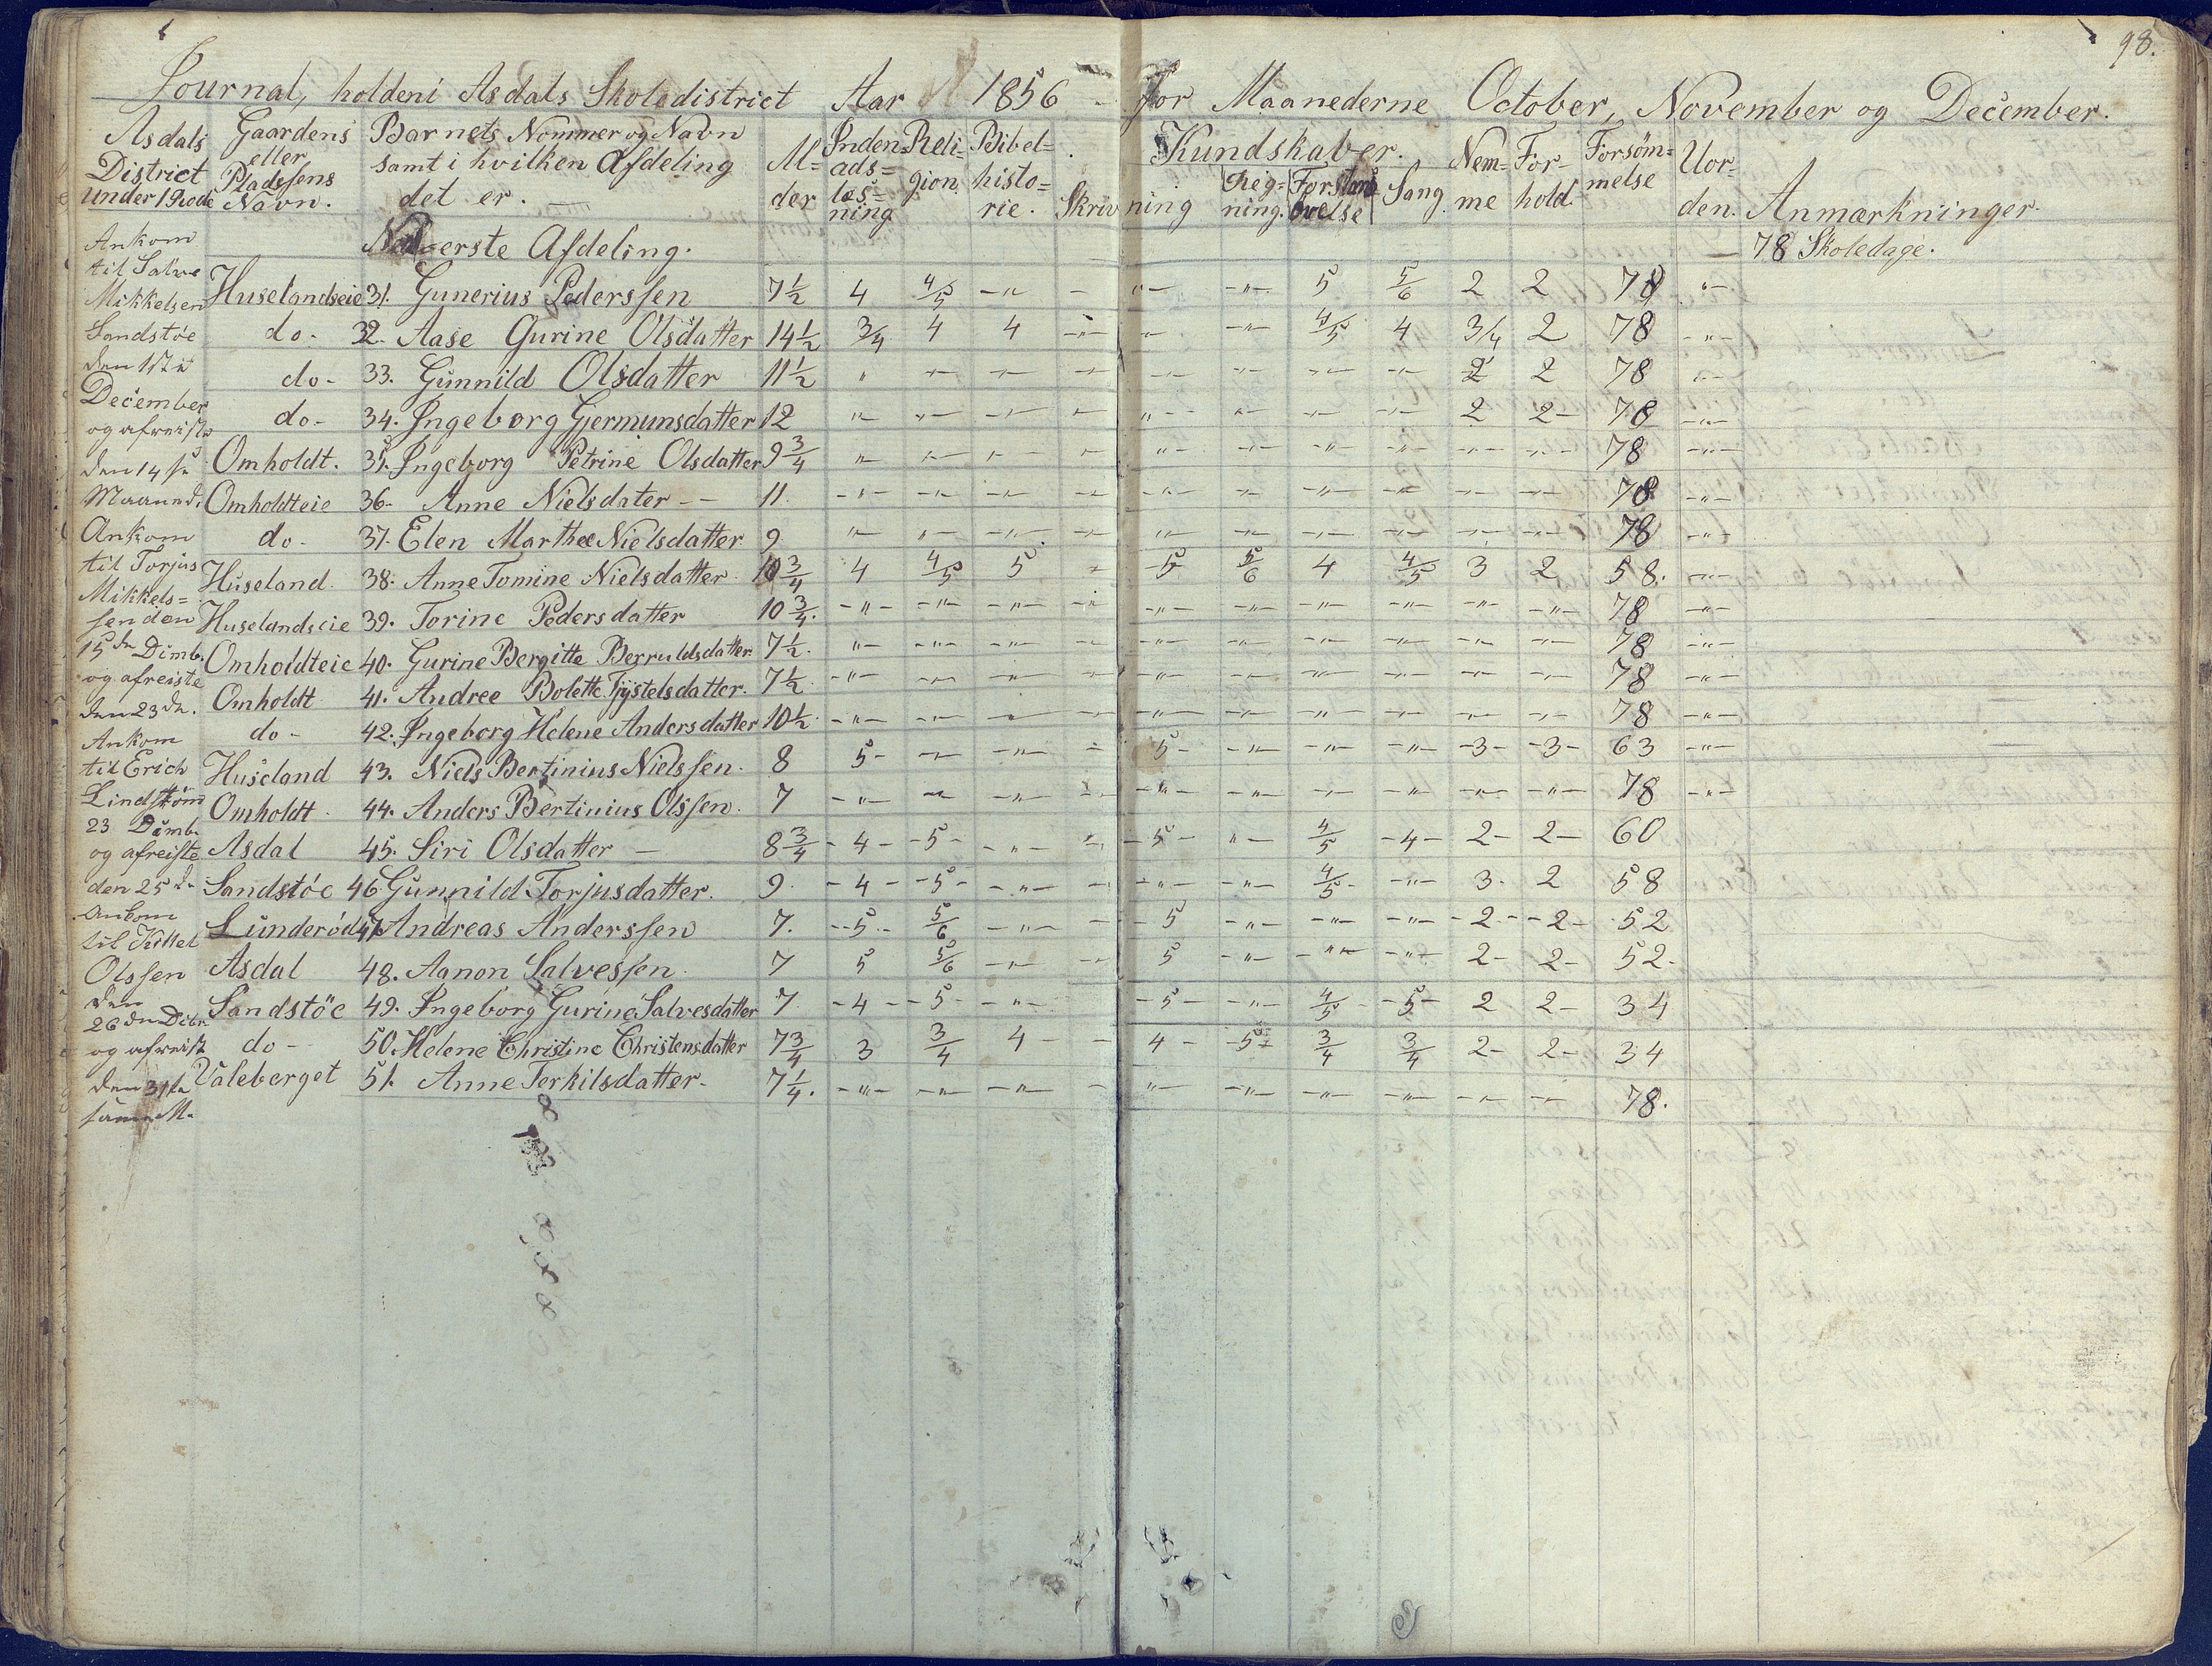 98.
Journal, holden i Asdals Skoledistrict Aar 1856 - for Maanederne October, November og December.
Asdals District under 1 Rode
Gaardens eller Pladssens Navn.
Barnets Nommer og Navn samt i hvilken Afdeling det er. —
Al= der
Inden= ads= læs= ning
Reli= gion
Bibel= histo= rie.
Skriv ning
Kundskaber.
Reg= ning.
Forstands øvelse
Sang
Nem= me
For= hold.
Forsøm= melse
Uor= den.
Anmærkninger.
Nederste Afdeling. — 78 Skoledage.
Huselandseie 31. Gunerius Pederssen 7 1/2 4 4/5 -"- - "- -"- 5 5/6 2 2 78 "-
do- 32. Aase Gurine Olsdatter 14 1/2 3/4 4 4 -"- "- -"- 4/5 4 3/4 2 78 -"-
do- 33. Gunnild Olsdatter 11 1/2 " -"- -"- -"- -"- -"- -"- -"- 2 2 78 -"-
do- 34. Ingeborg Gjermunsdatter 12 "- -"- -"- -"- "- -"- -"- -"- 2 2- 78 -"-
Omholdt. 35. Ingeborg Petrine Olsdatter 9 3/4 "- -"- -"- -"- "- -"- -"- -"- -"- -"- 78 -"-
Omholdteie 36- Anne Nielsdater -- 11. -"- -"- -"- -"- -"- -"- -"- -"- -"- -"- 78 -"-
do- 37. Elen Marthee Nielsdatter 9 "- -"- -"- -"- "- -"- -"- -"- -"- -"- 78 -"-
Huseland 38. Anne Tomine Nielsdatter 10 3/4 4 4/5 5 - 5 5/6 4 4/5 3 2 58. -"-
Huselandseie 39. Torine Pedersdatter 10 3/4. -"- -"- -"- -"- -"- -"- -"- -"- -"- -"- 78 -"-
Omholdteie 40. Gurine Bergitte Berruldsdatter 7 1/2. "- -"- -"- - -"- -"- -"- -"- -"- -"- 78 -"-
Omholdt 41. Andree Bolette Tjystelsdatter. 7 1/2. -"- -"- -"- - -"- -"- -"- -"- -"- -"- 78 -"-
do- 42. Ingeborg Helene Andersdatter 10 1/2. -"- -"- -"- - -"- -"- -"- -"- -"- -"- 78 -"-
Huseland 43. Niels Bertinius Nielssen. 8 5- -"- -"- - 5- -"- -"- -"- -3- -3- 63 -"-
Omholdt 44. Anders Bertinius Olssen. 7 -"- -"- -"- -"- -"- -"- -"- -"- -"- -"- 78 -"-
Asdal 45. Siri Olsdatter — 8 3/4 -4- -5- -"- -"- -5- "- 4/5 -4- 2- 2- 60
Sandstöe 46 Gunnild Torjusdatter. 9. -4- -5- -"- - -"- -"- 4/5- -"- 3. 2 58
Lunderöd 47 Andreas Anderssen 7. -5- 5/6 -"- - -5 -"- -"- -"- -2- -2- 52
Asdal 48. Agnon Salvessen. 7 5 5/6 -"- - 5 -"- -"- -"- 2- 2- 52-
Sandstöe 49. Ingeborg Gurine Salvesdatter 7. -4- -5- -"- -5- -"- 4/5- -5- 2 2- 34
do- 50. Helene Christine Christensdatter 7 3/4 3 3/4 4- - 4- -5- 3/4 3/4 2- 2- 34
Valeberget 51. Anne Terkilsdatter- 7 1/4. -"- -"- -"- - "- -"- -"- -"- -"- -"- 78.
Ankom
til Salve
Mikkelsen
Sandstöe
den 1ste
December
og afreiste
den 14 s.
Maaned.
Ankom
til Torjus
Mikkels=
sen den
15de Dcmb.
og afreiste
den 23de.
Ankom
til Erich
Lindström
23 Dcmb.
og afreiste
den 25de
Ankom
til Kittel
Olssen
den
26de Decbr
og afreist
den 31te
samme M.